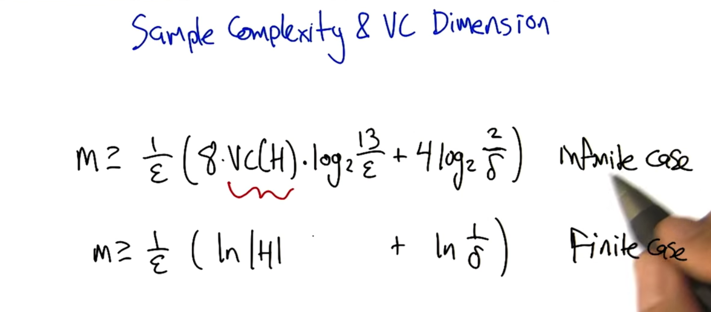 Sample Complexity & VC Dimension
m ≥ 1/ε (8·VC(H)·log₂ 13/ε + 4 log₂ 2/δ) Infinite case
m ≥ 1/ε (ln|H| + ln 1/δ) Finite case